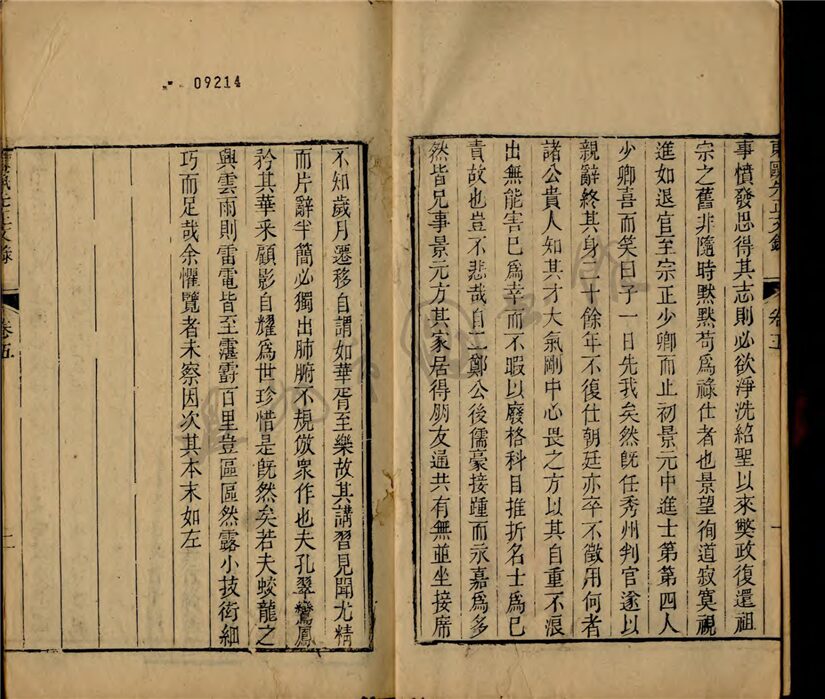 東甌先正文錄
卷五
一
事憤發思得其志則必欲淨洗紹聖以來獘政復還祖
宗之舊非隨時黙黙苟爲祿仕者也景望徇道寂寞視
進如退官至宗正少卿而止初景元中進士第第四人
少卿喜而笑曰子一日先我矣然旣任秀州判官遂以
親辭終其身二十餘年不復仕朝廷亦卒不徵用何者
諸公貴人知其才大氣剛中必畏之方以其自重不浪
出無能害已爲幸而不暇以廢格科目摧折名士爲已
責故也豈不悲哉自二鄭公後儒豪接踵而永嘉爲多
然皆兄事景元方其家居得朋友通共有無並坐接席
09214
不知歲月遷移自謂如華胥至樂故其講習見聞尤精
而片辭半簡必獨出肺腑不規倣衆作也夫孔翠鸞鳳
矜其華采顧影自耀爲世珍惜是旣然矣若夫蛟龍之
興雲雨則雷電皆至霮䨴百里豈區區然露小技衒細
巧而足哉余懼覽者未察因次其本末如左
卷五
二